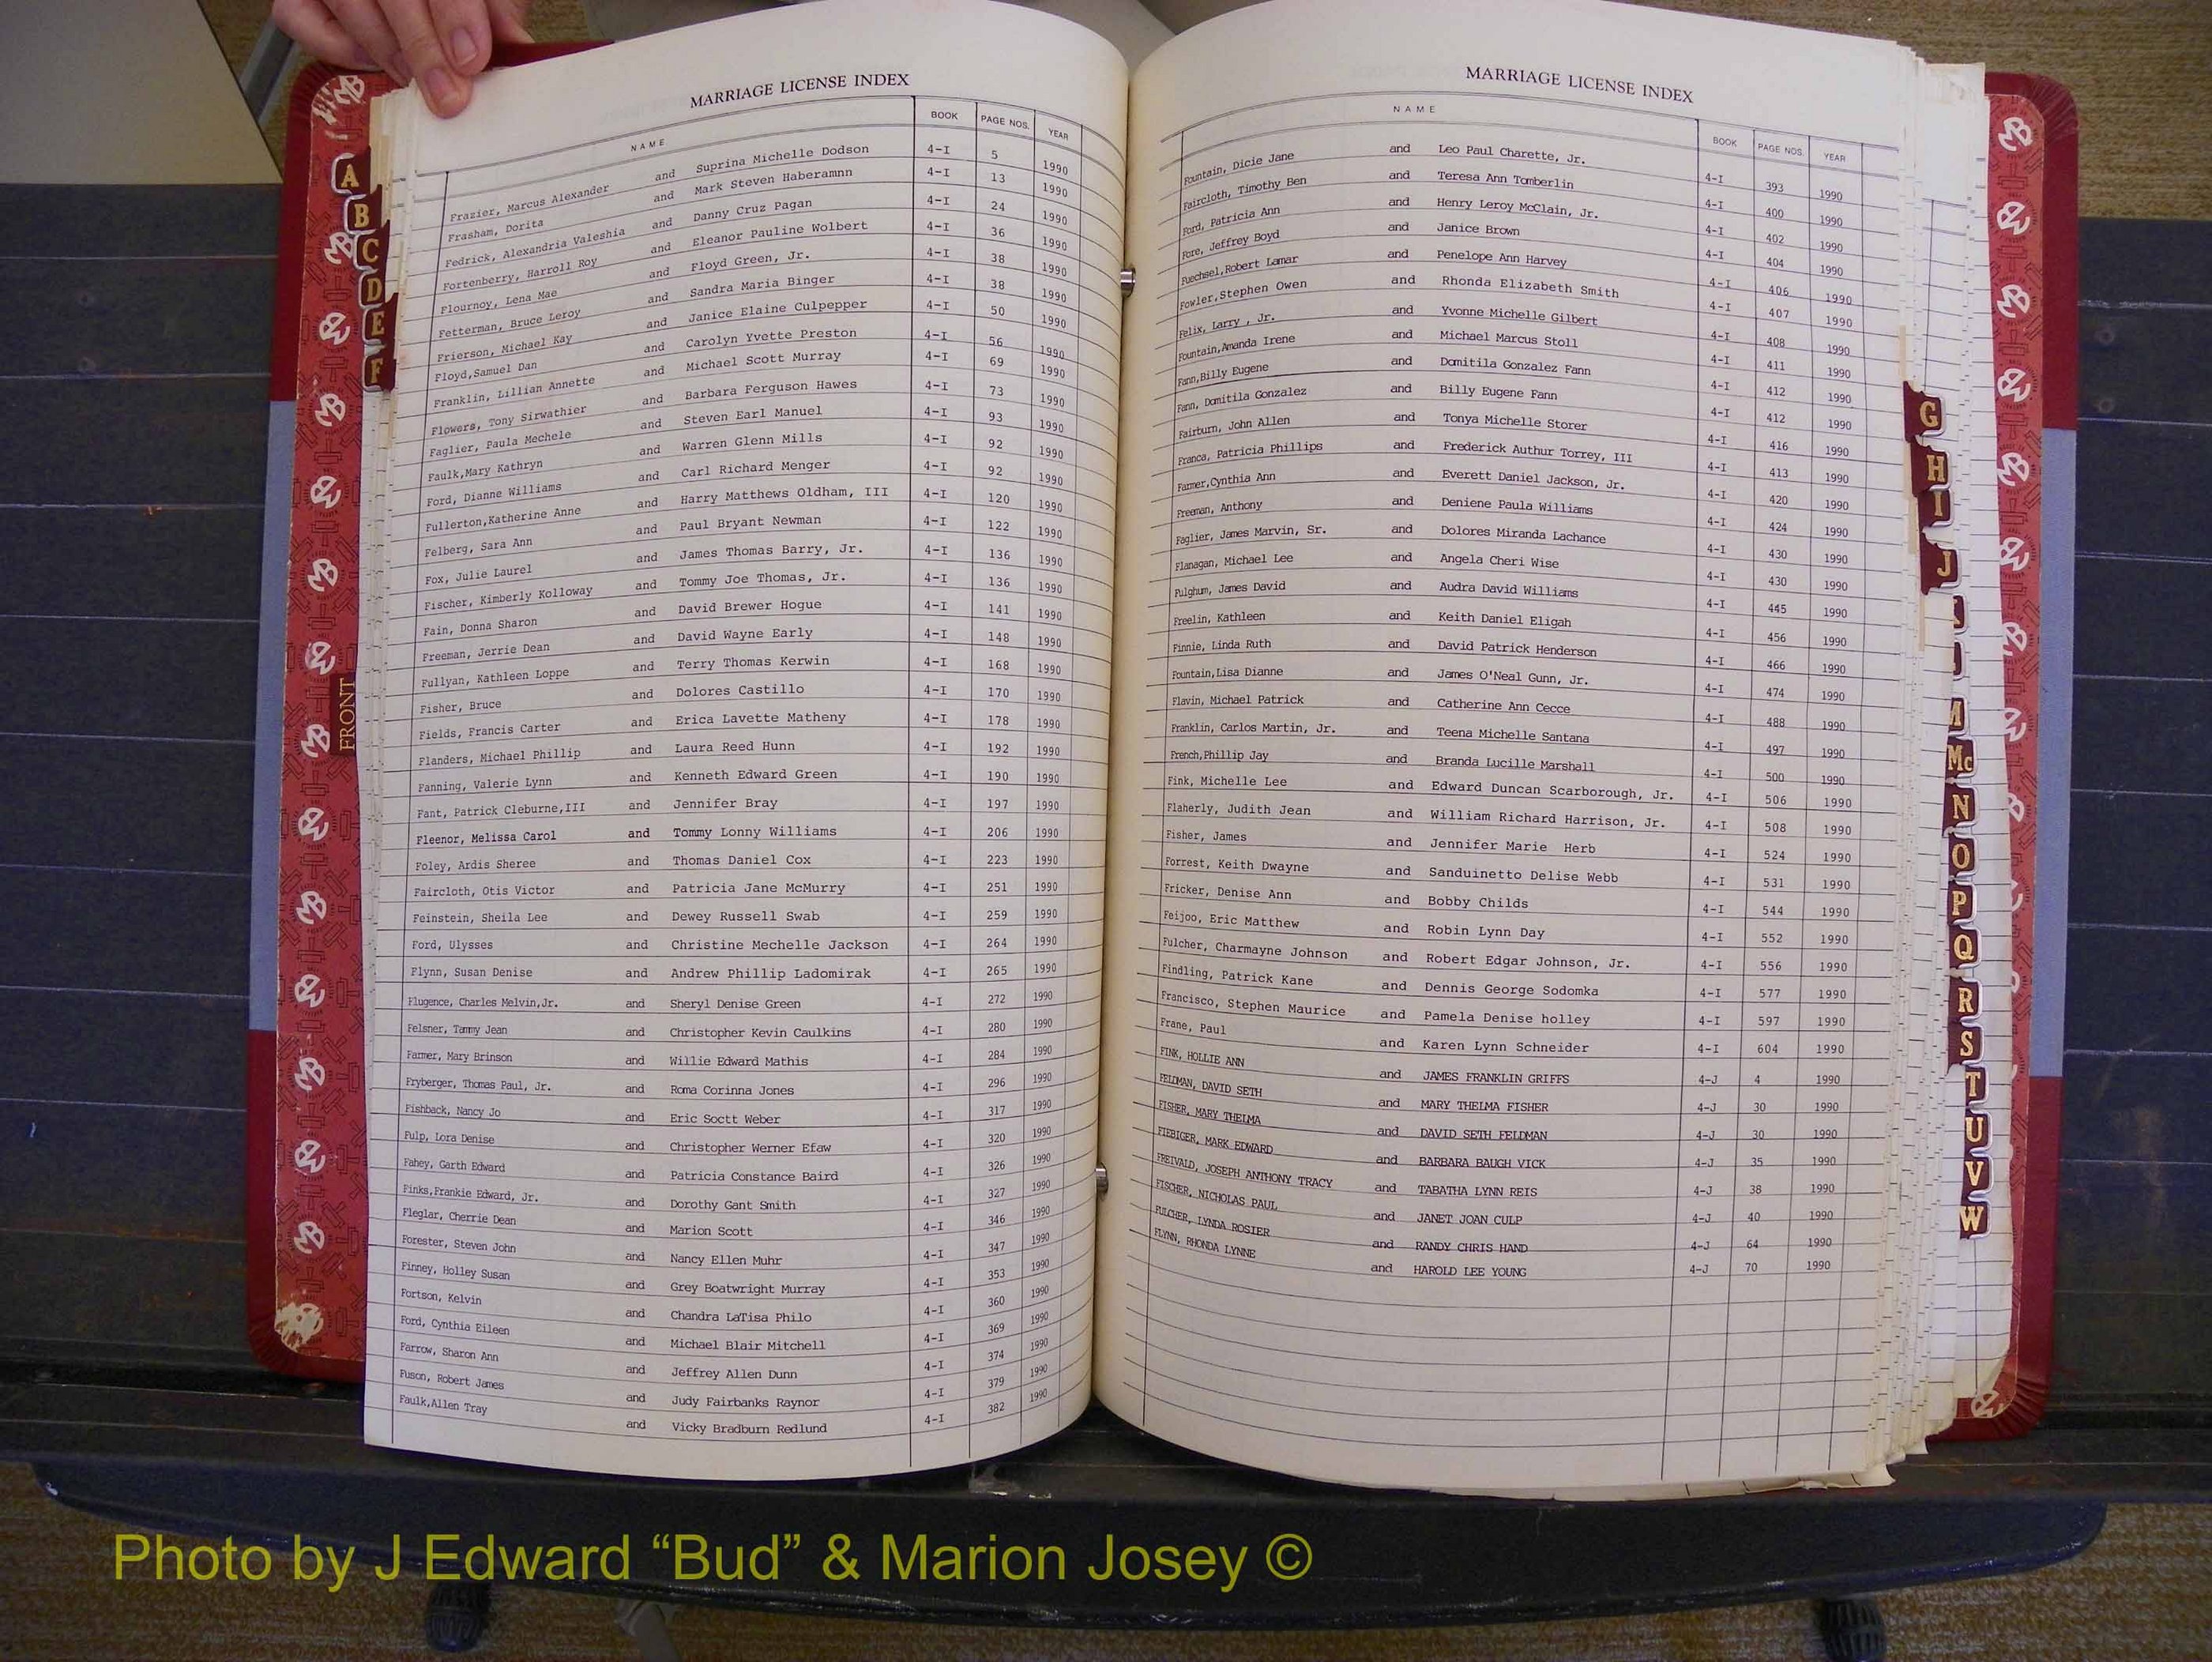 MARRIAGE LICENSE INDEX
NAME BOOK PAGE NOS. YEAR
Frazier, Marcus Alexander and Suprina Michelle Dodson 4-I 5 1990
Frasham, Dorita and Mark Steven Haberamnn 4-I 13 1990
Fedrick, Alexandria Valeshia and Danny Cruz Pagan 4-I 24 1990
Fortenberry, Harroll Roy and Eleanor Pauline Wolbert 4-I 36 1990
Flournoy, Lena Mae and Floyd Green, Jr. 4-I 38 1990
Fetterman, Bruce Leroy and Sandra Maria Binger 4-I 38 1990
Frierson, Michael Kay and Janice Elaine Culpepper 4-I 50 1990
Floyd,Samuel Dan and Carolyn Yvette Preston 4-I 56 1990
Franklin, Lillian Annette and Michael Scott Murray 4-I 69 1990
Flowers, Tony Sirwathier and Barbara Ferguson Hawes 4-I 73 1990
Faglier, Paula Mechele and Steven Earl Manuel 4-I 93 1990
Faulk,Mary Kathryn and Warren Glenn Mills 4-I 92 1990
Ford, Dianne Williams and Carl Richard Menger 4-I 92 1990
Fullerton,Katherine Anne and Harry Matthews Oldham, III 4-I 120 1990
Felberg, Sara Ann and Paul Bryant Newman 4-I 122 1990
Fox, Julie Laurel and James Thomas Barry, Jr. 4-I 136 1990
Fischer, Kimberly Kolloway and Tommy Joe Thomas, Jr. 4-I 136 1990
Fain, Donna Sharon and David Brewer Hogue 4-I 141 1990
Freeman, Jerrie Dean and David Wayne Early 4-I 148 1990
Fullyan, Kathleen Loppe and Terry Thomas Kerwin 4-I 168 1990
Fisher, Bruce and Dolores Castillo 4-I 170 1990
Fields, Francis Carter and Erica Lavette Matheny 4-I 178 1990
Flanders, Michael Phillip and Laura Reed Hunn 4-I 192 1990
Fanning, Valerie Lynn and Kenneth Edward Green 4-I 190 1990
Fant, Patrick Cleburne,III and Jennifer Bray 4-I 197 1990
Fleenor, Melissa Carol and Tommy Lonny Williams 4-I 206 1990
Foley, Ardis Sheree and Thomas Daniel Cox 4-I 223 1990
Faircloth, Otis Victor and Patricia Jane McMurry 4-I 251 1990
Feinstein, Sheila Lee and Dewey Russell Swab 4-I 259 1990
Ford, Ulysses and Christine Mechelle Jackson 4-I 264 1990
Flynn, Susan Denise and Andrew Phillip Ladomirak 4-I 265 1990
Flugence, Charles Melvin,Jr. and Sheryl Denise Green 4-I 272 1990
Felsner, Tammy Jean and Christopher Kevin Caulkins 4-I 280 1990
Farmer, Mary Brinson and Willie Edward Mathis 4-I 284 1990
Fryberger, Thomas Paul, Jr. and Roma Corinna Jones 4-I 296 1990
Fishback, Nancy Jo and Eric Soctt Weber 4-I 317 1990
Fulp, Lora Denise and Christopher Werner Efaw 4-I 320 1990
Fahey, Garth Edward and Patricia Constance Baird 4-I 326 1990
Finks,Frankie Edward, Jr. and Dorothy Gant Smith 4-I 327 1990
Fleglar, Cherrie Dean and Marion Scott 4-I 346 1990
Forester, Steven John and Nancy Ellen Muhr 4-I 347 1990
Finney, Holley Susan and Grey Boatwright Murray 4-I 353 1990
Fortson, Kelvin and Chandra LaTisa Philo 4-I 360 1990
Ford, Cynthia Eileen and Michael Blair Mitchell 4-I 369 1990
Farrow, Sharon Ann and Jeffrey Allen Dunn 4-I 374 1990
Fuson, Robert James and Judy Fairbanks Raynor 4-I 379 1990
Faulk,Allen Tray and Vicky Bradburn Redlund 4-I 382 1990
MARRIAGE LICENSE INDEX
NAME BOOK PAGE NOS. YEAR
Fountain, Dicie Jane and Leo Paul Charette, Jr. 4-I 393 1990
Faircloth, Timothy Ben and Teresa Ann Tomberlin 4-I 400 1990
Ford, Patricia Ann and Henry Leroy McClain, Jr. 4-I 402 1990
Fore, Jeffrey Boyd and Janice Brown 4-I 404 1990
Fuechsel,Robert Lamar and Penelope Ann Harvey 4-I 406 1990
Fowler,Stephen Owen and Rhonda Elizabeth Smith 4-I 407 1990
Felix, Larry , Jr. and Yvonne Michelle Gilbert 4-I 408 1990
Fountain,Amanda Irene and Michael Marcus Stoll 4-I 411 1990
Fann,Billy Eugene and Domitila Gonzalez Fann 4-I 412 1990
Fann, Domitila Gonzalez and Billy Eugene Fann 4-I 412 1990
Fairburn, John Allen and Tonya Michelle Storer 4-I 416 1990
Franca, Patricia Phillips and Frederick Authur Torrey, III 4-I 413 1990
Farmer,Cynthia Ann and Everett Daniel Jackson, Jr. 4-I 420 1990
Freeman, Anthony and Deniene Paula Williams 4-I 424 1990
Faglier, James Marvin, Sr. and Dolores Miranda Lachance 4-I 430 1990
Flanagan, Michael Lee and Angela Cheri Wise 4-I 430 1990
Fulghum, James David and Audra David Williams 4-I 445 1990
Freelin, Kathleen and Keith Daniel Eligah 4-I 456 1990
Finnie, Linda Ruth and David Patrick Henderson 4-I 466 1990
Fountain,Lisa Dianne and James O'Neal Gunn, Jr. 4-I 474 1990
Flavin, Michael Patrick and Catherine Ann Cecce 4-I 488 1990
Franklin, Carlos Martin, Jr. and Teena Michelle Santana 4-I 497 1990
French,Phillip Jay and Branda Lucille Marshall 4-I 500 1990
Fink, Michelle Lee and Edward Duncan Scarborough, Jr. 4-I 506 1990
Flaherly, Judith Jean and William Richard Harrison, Jr. 4-I 508 1990
Fisher, James and Jennifer Marie Herb 4-I 524 1990
Forrest, Keith Dwayne and Sanduinetto Delise Webb 4-I 531 1990
Fricker, Denise Ann and Bobby Childs 4-I 544 1990
Feijoo, Eric Matthew and Robin Lynn Day 4-I 552 1990
Fulcher, Charmayne Johnson and Robert Edgar Johnson, Jr. 4-I 556 1990
Findling, Patrick Kane and Dennis George Sodomka 4-I 577 1990
Francisco, Stephen Maurice and Pamela Denise holley 4-I 597 1990
Frane, Paul and Karen Lynn Schneider 4-I 604 1990
FINK, HOLLIE ANN and JAMES FRANKLIN GRIFFS 4-J 4 1990
FELDMAN, DAVID SETH and MARY THELMA FISHER 4-J 30 1990
FISHER, MARY THELMA and DAVID SETH FELDMAN 4-J 30 1990
FIEBIGER, MARK EDWARD and BARBARA BAUGH VICK 4-J 35 1990
FREIVALD, JOSEPH ANTHONY TRACY and TABATHA LYNN REIS 4-J 38 1990
FISCHER, NICHOLAS PAUL and JANET JOAN CULP 4-J 40 1990
FULCHER, LYNDA ROSIER and RANDY CHRIS HAND 4-J 64 1990
FLYNN, RHONDA LYNNE and HAROLD LEE YOUNG 4-J 70 1990
A
B
C
D
E
F
FRONT
G
H
I
J
M
Mc
N
O
P
Q
R
S
T
U
V
W
Photo by J Edward “Bud” & Marion Josey ©